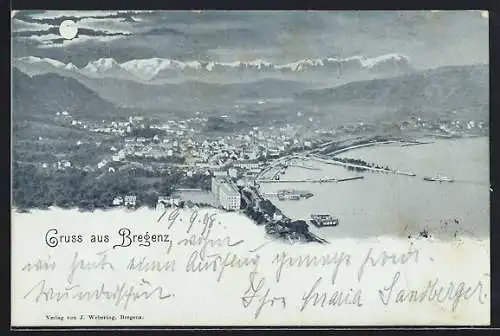 19.9.98.
Gruss aus Bregenz,
wohin
wir heute einen Ausflug gemacht haben.
Wunderschön
Ihre Maria Sandberger.
Verlag von J. Webering, Bregenz.